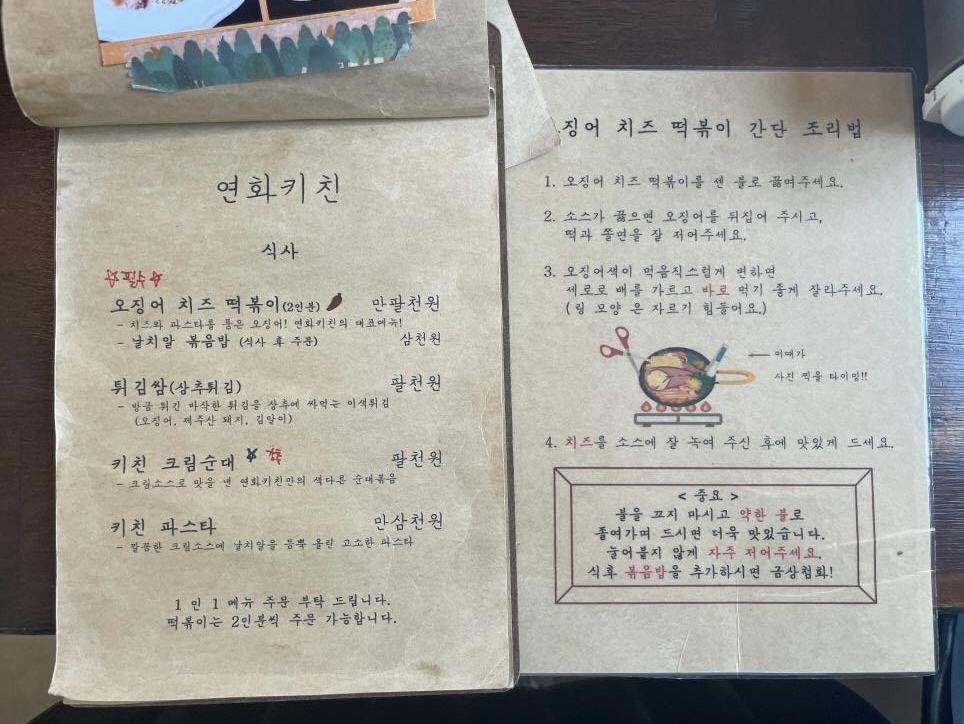 연화키친
식사
☆필수☆
오징어 치즈 떡볶이(2인분) 만팔천원
- 치즈와 파스타를 품은 오징어! 연화키친의 대표메뉴!
- 날치알 볶음밥 (식사 후 주문) 삼천원
튀김쌈(상추튀김) 팔천원
- 방금 튀긴 바삭한 튀김을 상추에 싸먹는 이색튀김
(오징어, 제주산 돼지, 김말이)
키친 크림순대 ☆ 팔천원
- 크림소스로 맛을 낸 연화키친만의 색다른 순대볶음
키친 파스타 만삼천원
- 깔끔한 크림소스에 날치알을 듬뿍 올린 고소한 파스타
1 인 1 메뉴 주문 부탁 드립니다.
떡볶이는 2인분씩 주문 가능합니다.
징어 치즈 떡볶이 간단 조리법
1. 오징어 치즈 떡볶이를 센 불로 끓여주세요.
2. 소스가 끓으면 오징어를 뒤집어 주시고,
떡과 쫄면을 잘 저어주세요.
3. 오징어색이 먹음직스럽게 변하면
세로로 배를 가르고 바로 먹기 좋게 잘라주세요.
(링 모양 은 자르기 힘들어요.)
이때가
사진 찍을 타이밍!!
4. 치즈를 소스에 잘 녹여 주신 후에 맛있게 드세요.
< 중요 >
불을 끄지 마시고 약한 불로
졸여가며 드시면 더욱 맛있습니다.
눌어붙지 않게 자주 저어주세요.
식후 볶음밥을 추가하시면 금상첨화!